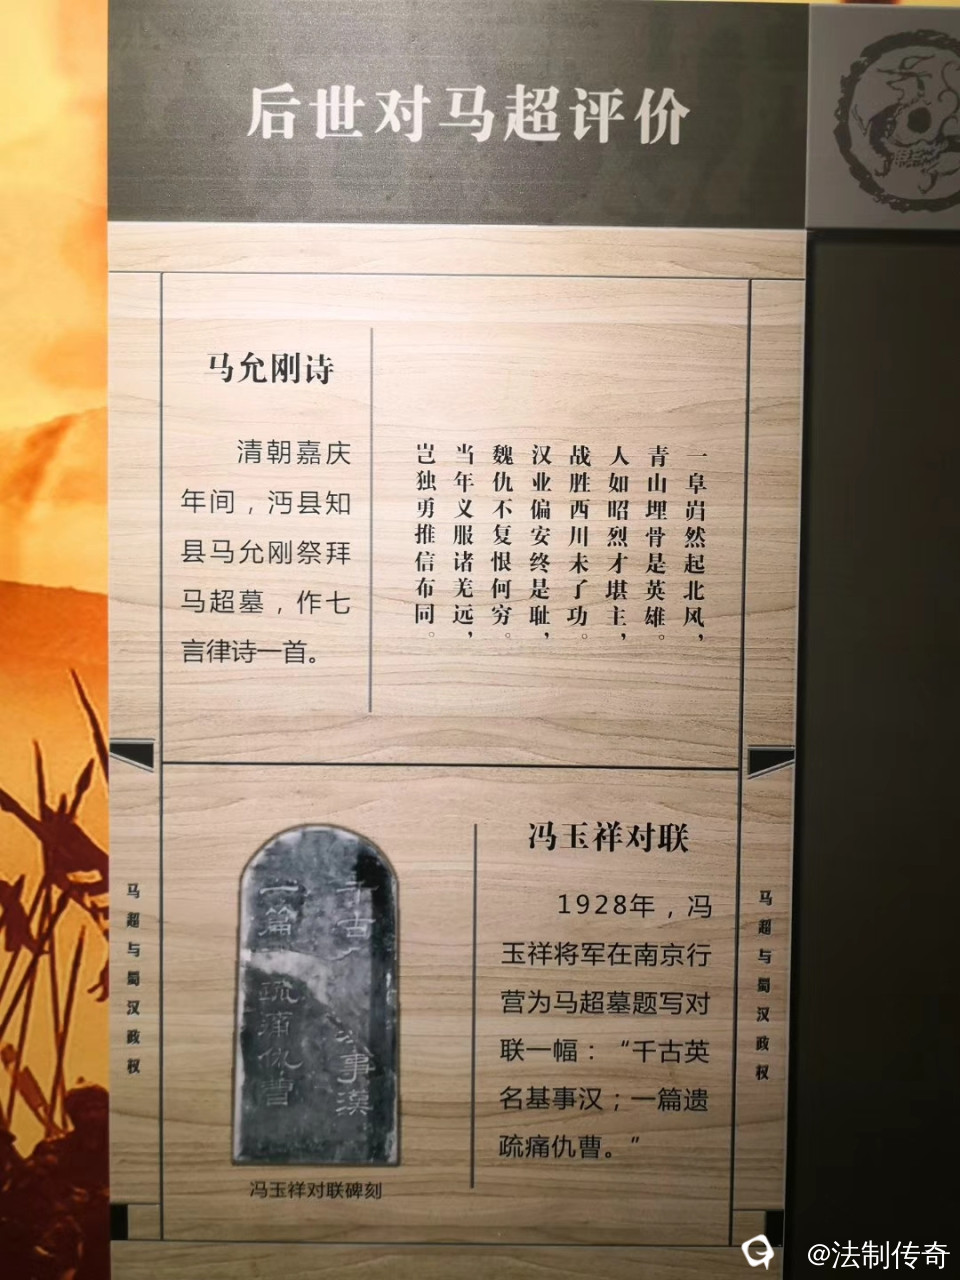 后世对马超评价
马允刚诗
清朝嘉庆
年间，沔县知
县马允刚祭拜
马超墓，作七
言律诗一首。
一阜岿然起北风，
青山埋骨是英雄。
人如昭烈才堪主，
战胜西川未了功。
汉业偏安终是耻，
魏仇不复恨何穷。
当年义服诸羌远，
岂独勇推信布同。
冯玉祥对联
1928年，冯
玉祥将军在南京行
营为马超墓题写对
联一幅：“千古英
名基事汉；一篇遗
疏痛仇曹。”
千古
事漢
一篇
疏痛仇曹
冯玉祥对联碑刻
马超与蜀汉政权
马超与蜀汉政权
@法制传奇